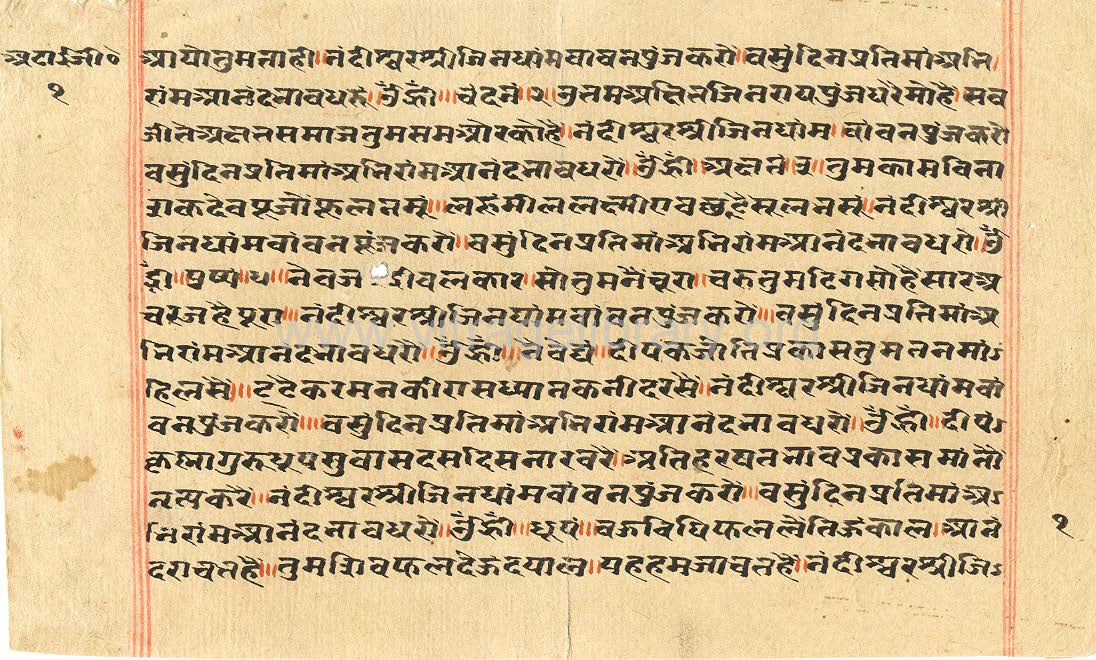 अठाईजी०
१
आयोतुमनाही॥नंदीस्वरश्रीजिनधांमबाबनपुंजकरौ॥वसुंदिनप्रतिमांअभि
रांमआनंदनावधरु॥उँह्रीं॥चंदनं॥२॥उतमअक्षितजिनरायपुंजधरेमोहै॥सब
जीतेअक्षतसमाजतुमसमओरकोहै॥नंदीस्वरश्रीजिनधांम॥बांबनपुंजकरौ
वसुंदिनप्रतिमांअभिरांमआनंदनावधरौ॥उँह्रीं॥अक्षतनं३॥तुमकामविना
नंदीस्वरश्री
जिनधांमबांबनपुंजकरौ॥वसुंदिनप्रतिमांअभिरांमआनंदनावधरौ॥उँ
ह्रीं॥पुष्पं॥४॥नेवज वलकार॥सोतुमनैंचूरा॥चरुतुमढिगसोहैसारअ
चरजहैपूरा॥नंदीस्वरश्रीजिनधांमबांबनपुंजकरौ॥वसुंदिनप्रतिमांअ
भिरांमआनंदनावधरौ॥उँह्रीं॥नैवेद्यं॥दीपकजोतिप्रकासतुमतनमां
हिलसै॥टूटैकरमनकीरासध्यानकनीदरसै॥नंदीस्वरश्रीजिनधांमबां
बनपुंजकरौ॥वसुंदिनप्रतिमांअभिरांमआनंदनावधरौ॥उँह्रीं॥दीपं
कृष्णागुरुधूपसुवासदसदिसनारवरै॥अतिहरषनावप्रकासमांनौं
नृत्यकरै॥नंदीस्वरश्रीजिनधांमबांबनपुंजकरौ॥वसुंदिनप्रतिमांअ
भिरांमआनंदनावधरौ॥उँह्रीं॥धूपं॥बऊविधिफललैतिऊंकाल॥आनं
दराचतहै॥तुमशिवफलदेऊदयाल॥यहहमजाचतहै॥नंदीस्वरश्रीजि
१
www.vitragelibrary.org